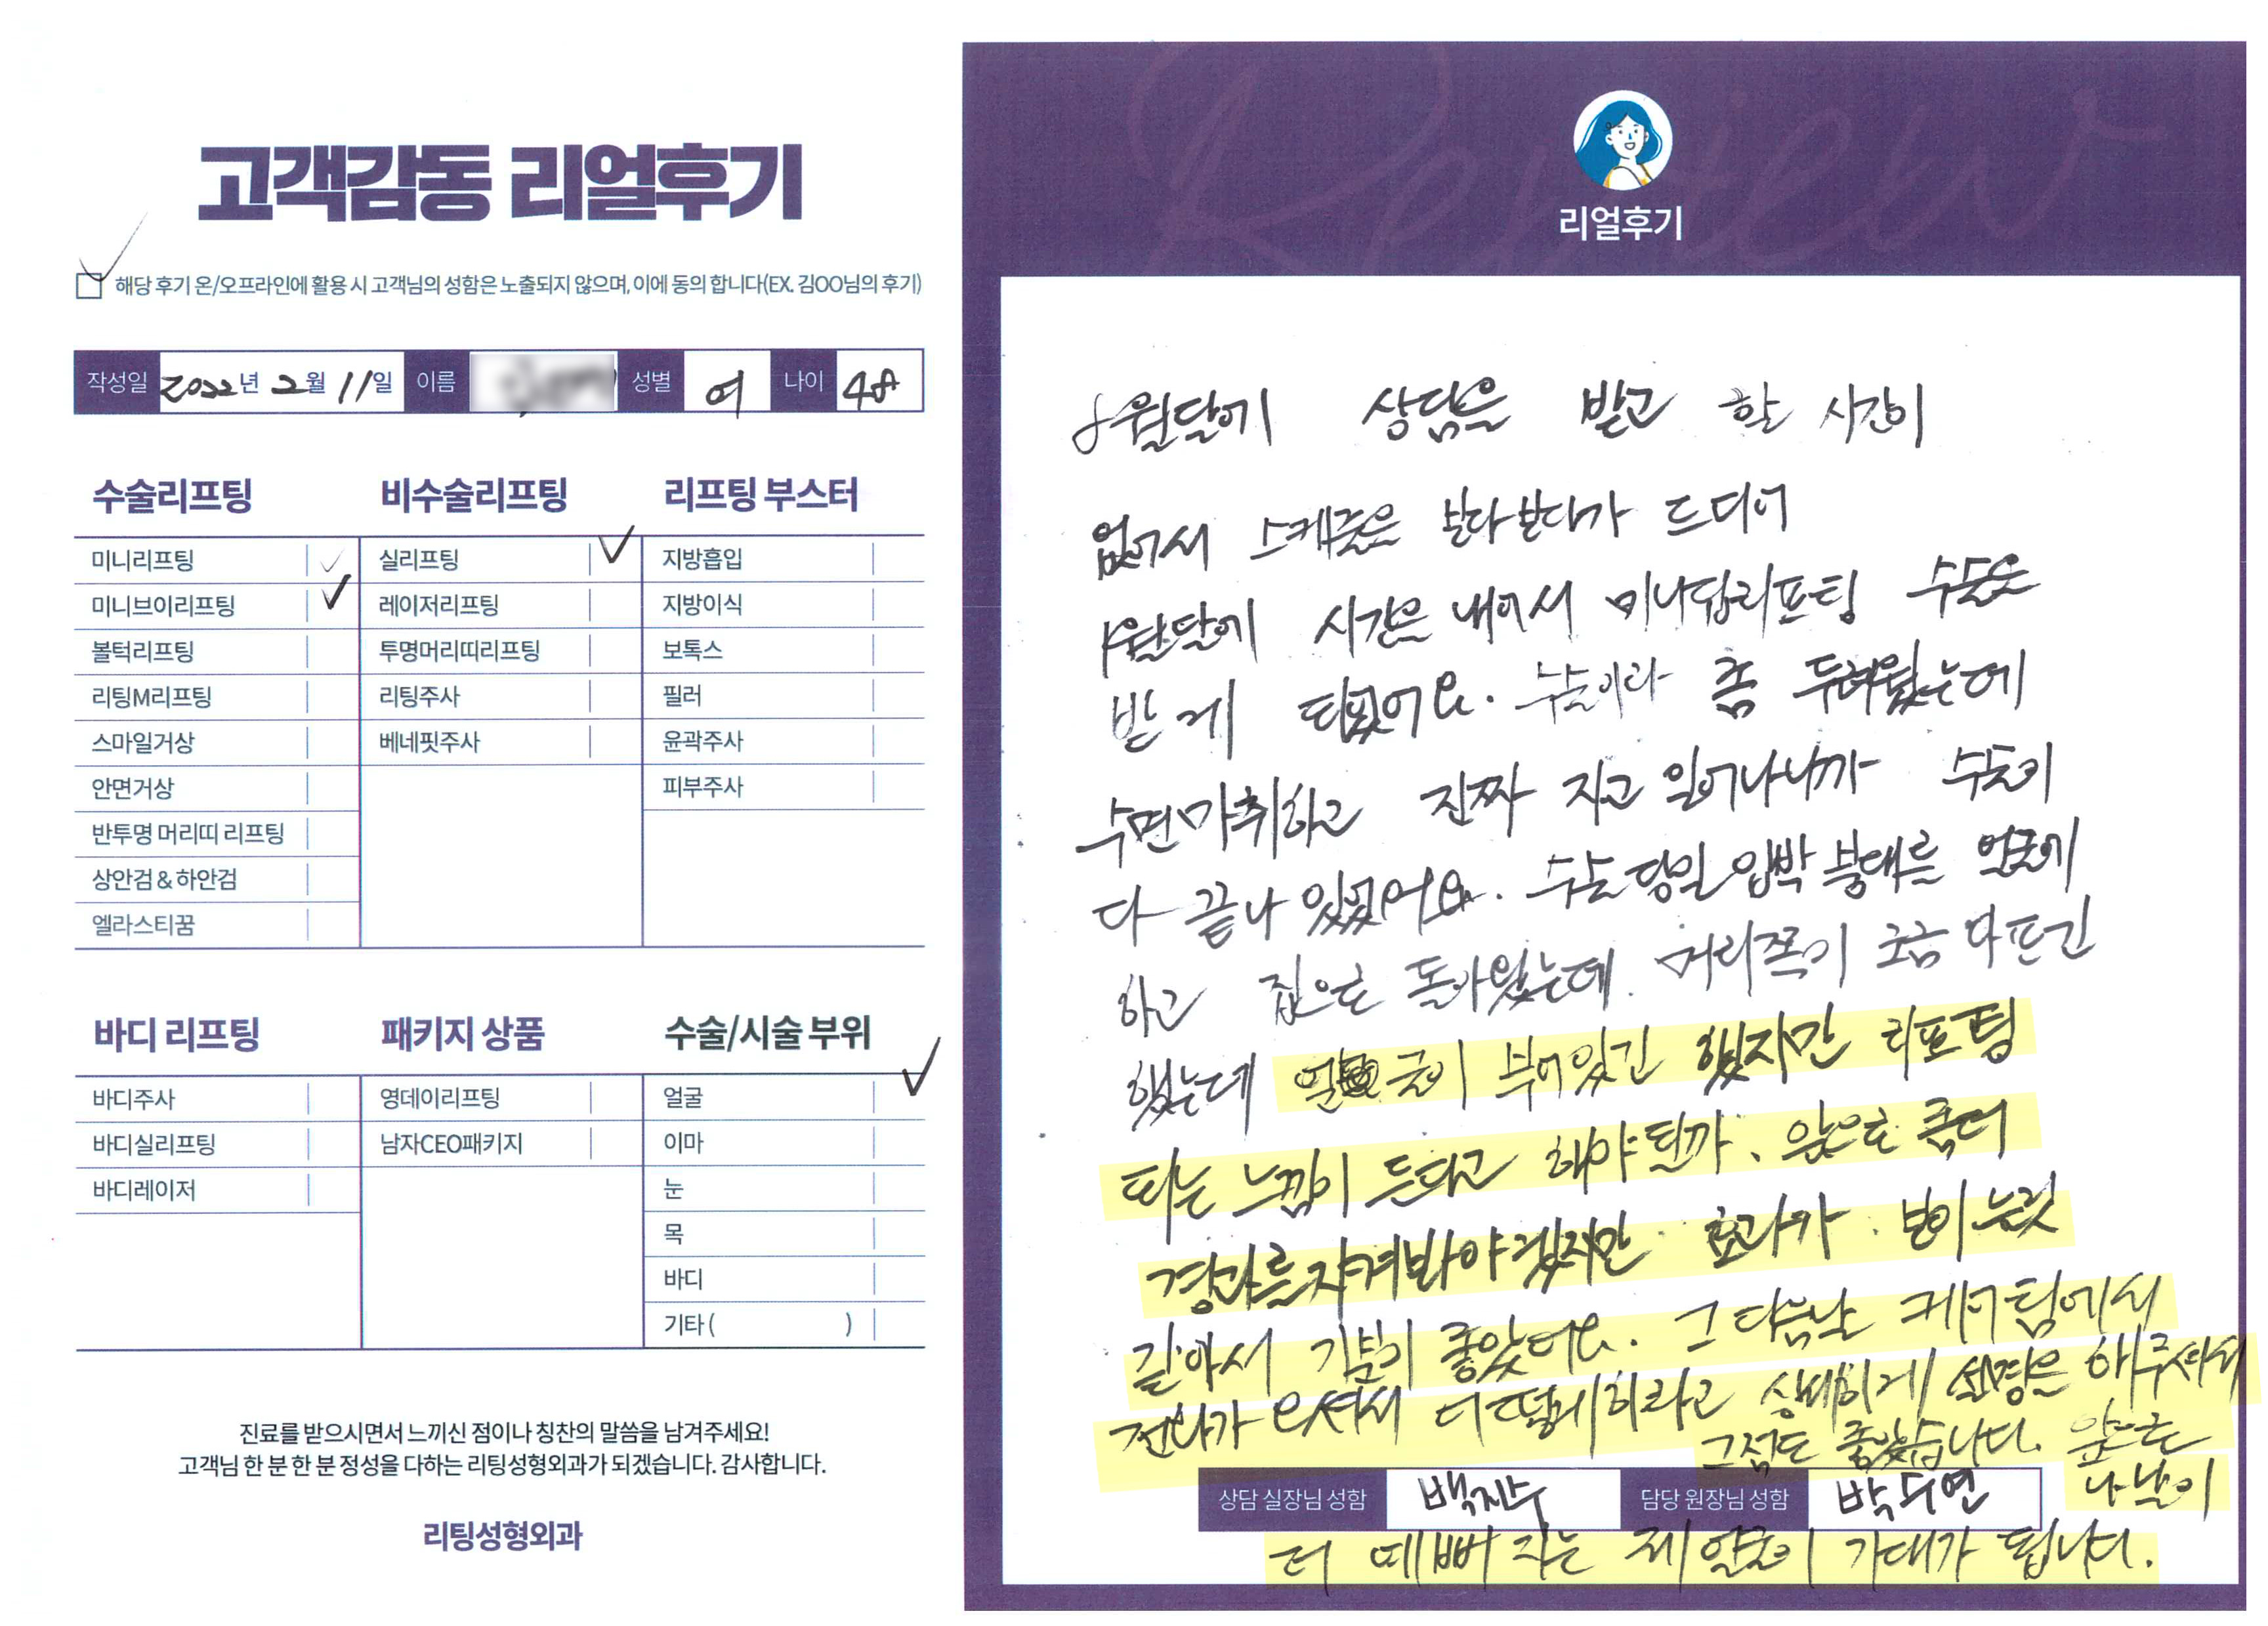 고객감동 리얼후기
해당 후기 온/오프라인에 활용 시 고객님의 성함은 노출되지 않으며, 이에 동의 합니다(EX. 김OO님의 후기)
작성일 2022년 2월 11일 이름 성별 여 나이 48
수술리프팅
미니리프팅
미니브이리프팅
볼턱리프팅
리팅M리프팅
스마일거상
안면거상
반투명 머리띠 리프팅
상안검 & 하안검
엘라스티꿈
비수술리프팅
실리프팅
레이저리프팅
투명머리띠리프팅
리팅주사
베네핏주사
리프팅 부스터
지방흡입
지방이식
보톡스
필러
윤곽주사
피부주사
바디 리프팅
바디주사
바디실리프팅
바디레이저
패키지 상품
영데이리프팅
남자CEO패키지
수술/시술 부위
얼굴
이마
눈
목
바디
기타 ( )
진료를 받으시면서 느끼신 점이나 칭찬의 말씀을 남겨주세요!
고객님 한 분 한 분 정성을 다하는 리팅성형외과가 되겠습니다. 감사합니다.
리팅성형외과
Review
리얼후기
8월달에 상담을 받고 할 시간이
없어서 스케줄을 보다보다가 드디어
1월달에 시간을 내어서 리프팅 수술을
받게 되었어요. 수술이라 좀 두려웠는데
수면마취하고 진짜 자고 일어나니까 수술이
다 끝나 있었어요. 수술 당일 압박 붕대를 얼굴에
하고 집으로 돌아왔는데. 머리쪽이 조금 아프긴
했는데 얼굴이 부어있긴 했지만 리프팅
되는 느낌이 든다고 해야될까. 앞으로 좀더
경과를 지켜봐야겠지만 효과가 보이는것
같아서 기분이 좋았어요. 그 다음날 케어팀에서
전화가 오셔서 어떻게하라고 상세하게 설명을 해주셔서
그점도 좋았습니다. 앞으로
나날이
더 예뻐지는 제 얼굴이 기대가 됩니다.
상담 실장님 성함 백지수 담당 원장님 성함 박두연